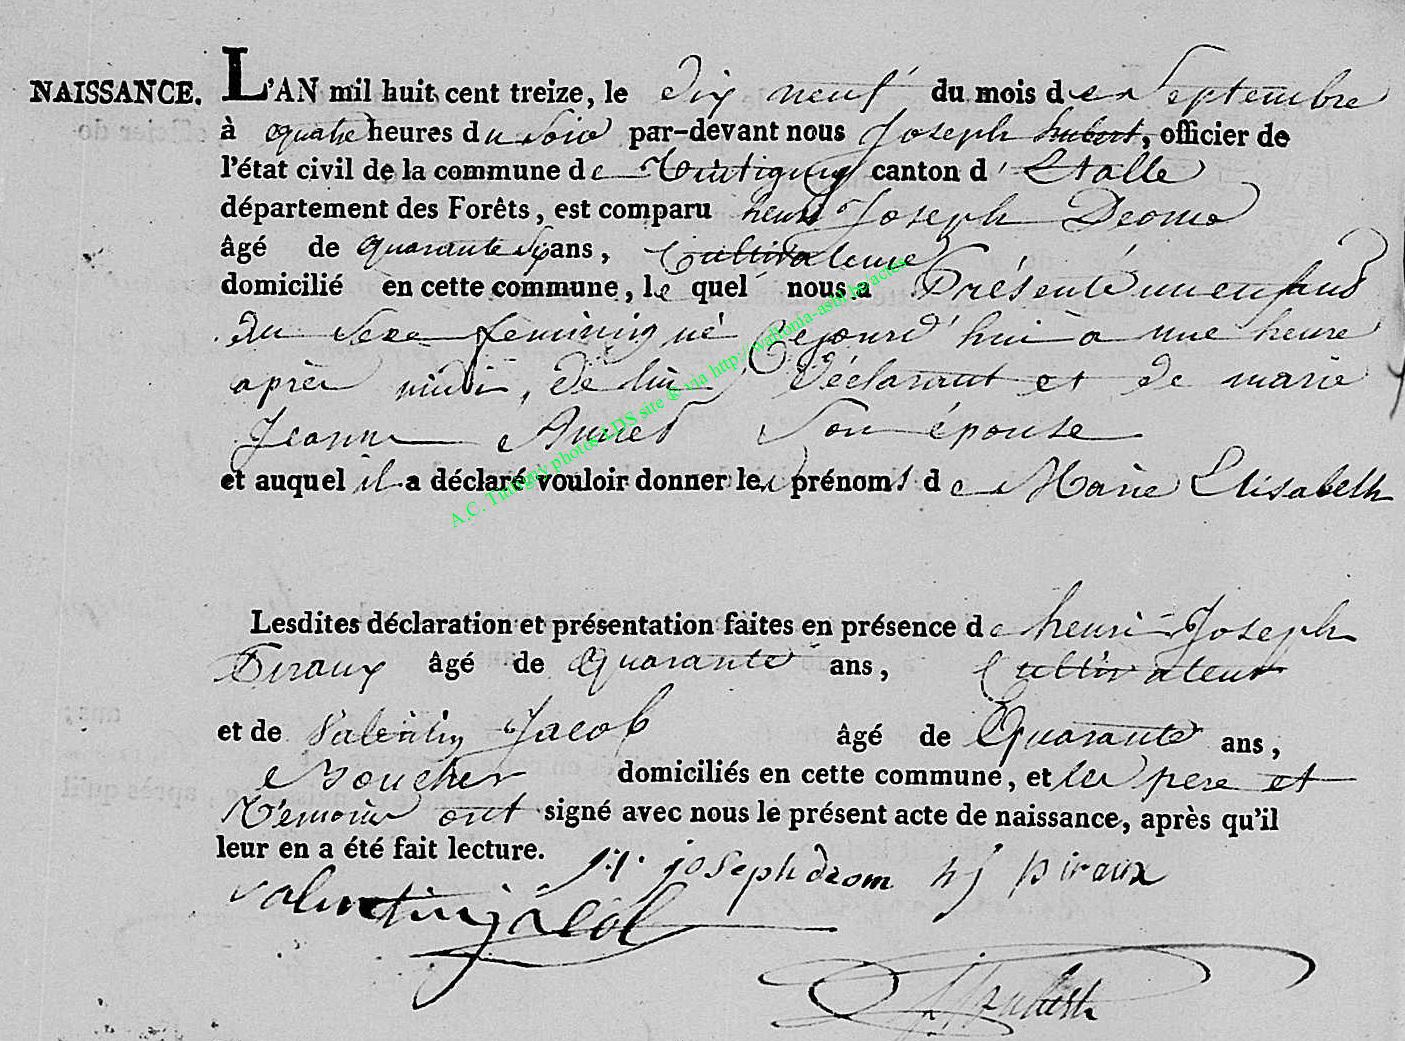 NAISSANCE. L'AN mil huit cent treize, le dix neuf du mois de Septembre
à quatre heures du soir par-devant nous Joseph hubert, officier de
l'état civil de la commune de Tintigny canton d'Etalle
département des Forêts, est comparu henri Joseph Deome
âgé de quarante six ans, Cultivateur
domicilié en cette commune, le quel nous a Présenté un enfant
du Sexe féminin né Cejourd'hui à une heure
après midi, de lui déclarant et de marie
Jeanne Son épouse
et auquel il a déclaré vouloir donner les prénoms de Marie Elisabeth
A.C. Tintigny photos LDS site @ via http://wallonia-asbl.be/actes
Lesdites déclaration et présentation faites en présence de henri Joseph
Piraux âgé de Quarante ans, Cultivateur
et de Valentin Jacob âgé de Quarante ans,
Boucher domiciliés en cette commune, et les pere et
Témoins ont signé avec nous le présent acte de naissance, après qu'il
leur en a été fait lecture.
h. joseph deom hj piraux
valentin jacob